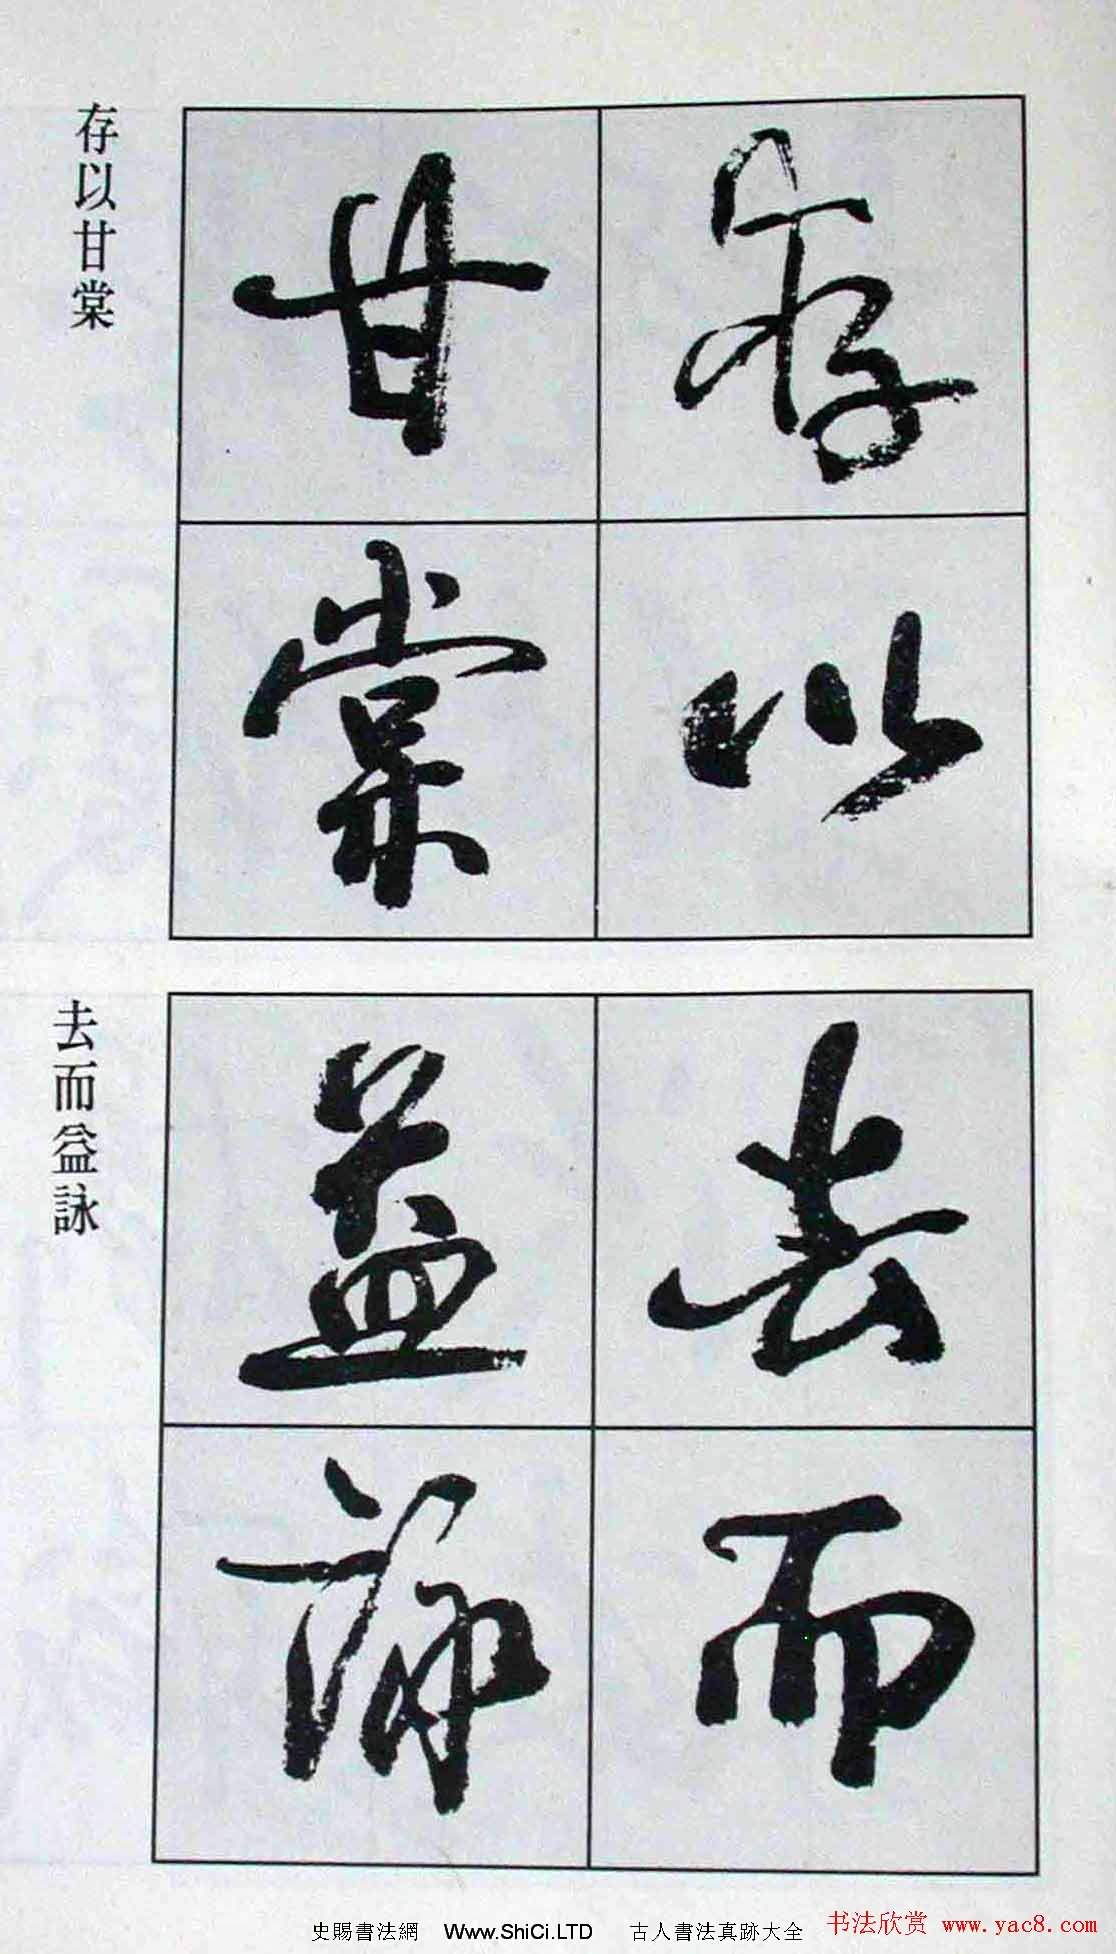 存以
甘棠
存以甘棠
去而
益詠
去而益詠
史賜書法網 Www.ShiCi.LTD 古人書法真跡大全
书法欣赏 www.yac8.com